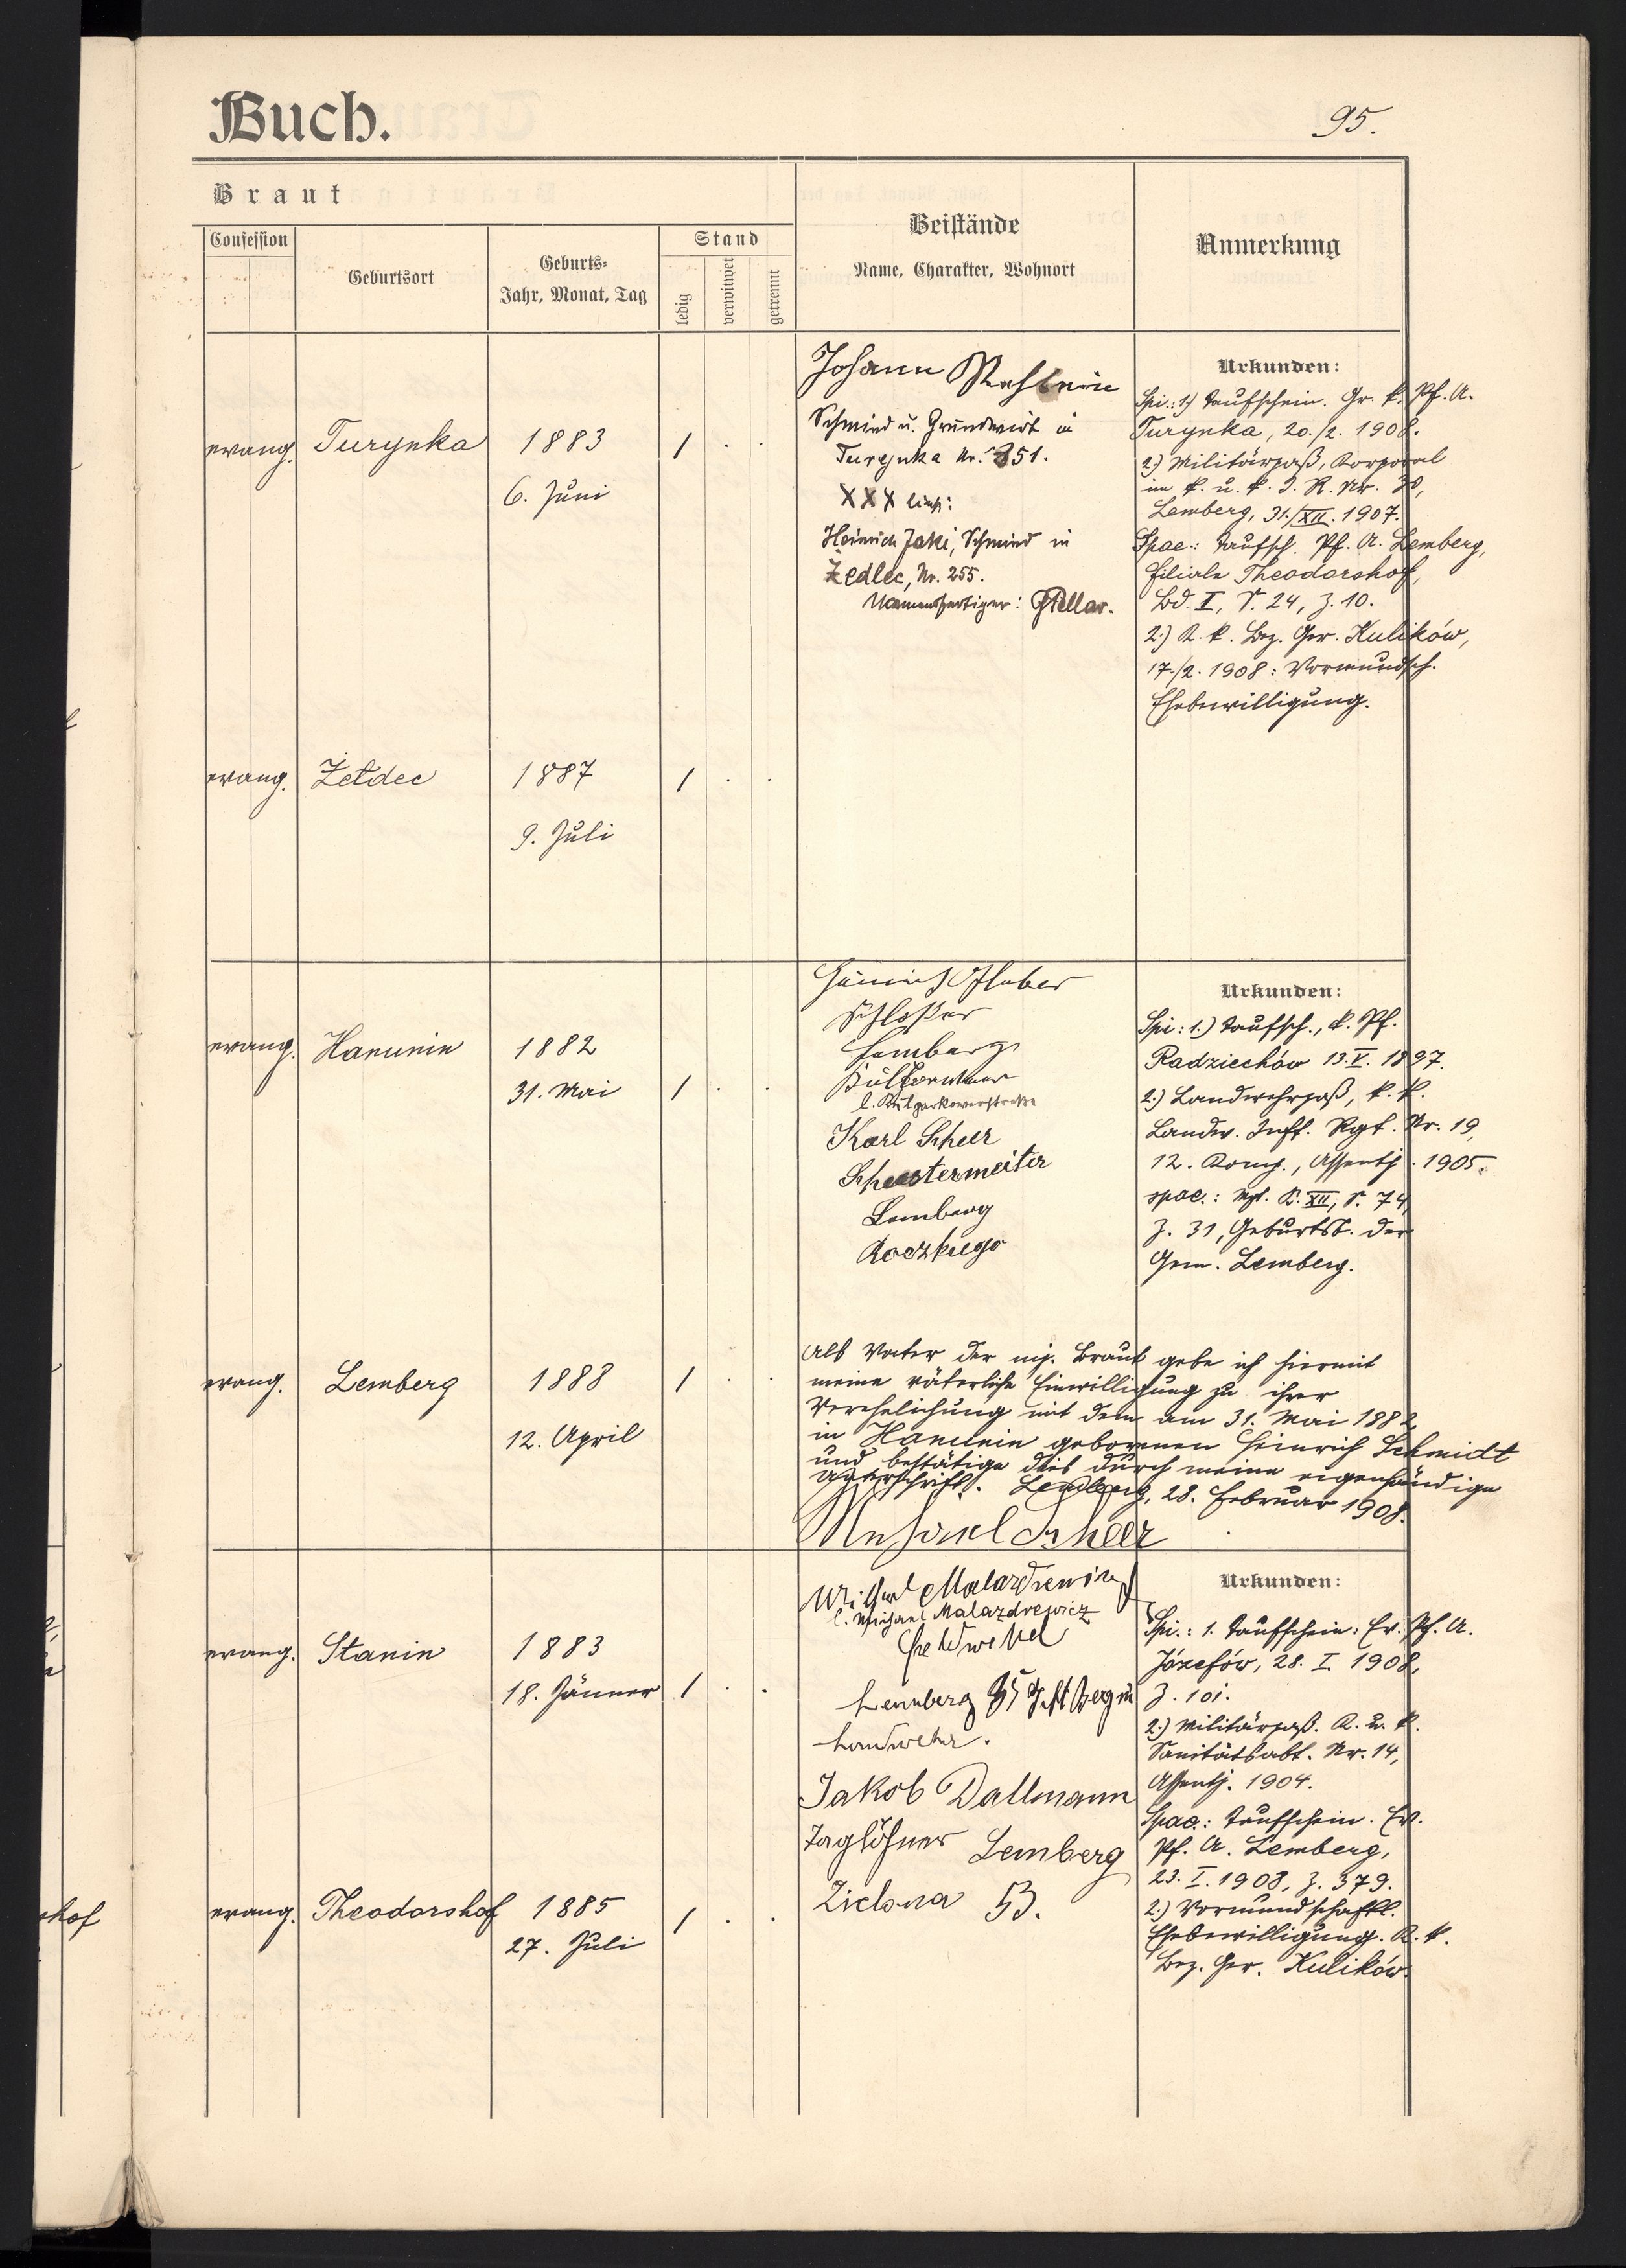 Buch.
95.
Braut
Confession
Geburtsort
Geburts-
Jahr, Monat, Tag
Stand
ledig
verwitwet
getrennt
Beistände
Name, Charakter, Wohnort
Anmerkung
evang. Turynka 1883 1 . .
6. Juni
Johann
Schmied u. Grundwirt in
Turynka Nr. 351.
XXX
Heinrich Jaki, Schmied in
Żedlec, Nr. 255.
Namensfertiger:
Urkunden:
Spi.: 1) Taufschein. Gr. k. Pf. A.
Turynka, 20./2. 1908.
2.) Militärpaß, Korporal
im k. u. k. I. R. Nr. 30,
Lemberg, 31./XII. 1907.
Spae.: Taufsch. Pf. A. Lemberg,
Filiale Theodorshof,
Bd. I, S. 24, Z. 10.
2.) K. k. Bez. Ger. Kulików,
17./2. 1908: Vormundsch.
Ehebewilligung.
evang. Żełdec 1887 1 . .
9. Juli
evang. Hanunin 1882
31. Mai 1 . .
Schlosser
Lemberg
Karl Scheer
Lemberg
Urkunden:
Spi: 1.) Taufsch., k. Pf.
Radziechów 13.V. 1897.
2.) Landwehrpaß, k. k.
Landw. Inft. Rgt. Nr. 19,
12. Komp., Assentj. 1905.
spae.: B. XII, S. 74,
Z. 31, Geburtsb. der
Gem. Lemberg.
evang. Lemberg 1888 1 . .
12. April
Als Vater der mj. Braut gebe ich hiermit
meine väterliche Einwilligung zu ihrer
Verehelichung mit dem am 31. Mai 1882
in Hanunin geborenen Heinrich Schmidt
und bestätige dies durch meine eigenhändige
Unterschrift. Lemberg, 28. Februar 1908.
Scheer
evang. Stanin 1883
18. Jänner 1 . .
Malazdrewicz
l. Michael Malazdrewicz
Feldwebel
Lemberg 35
Landwehr.
Jakob Dallmann
Taglöhner Lemberg
Zielona 53.
Urkunden:
Spi.: 1. Taufschein: Ev. Pf. A.
Józefów, 28. I. 1908,
Z. 101.
2.) Militärpaß. K. u. k.
Sanitätsabt. Nr. 14,
Assentj. 1904.
Spae.: Taufschein. Ev.
Pf. A. Lemberg,
23. I. 1908, Z. 379.
2.) Vormundschaftl.
Ehebewilligung. K. k.
Bez. Ger. Kulików.
evang. Theodorshof 1885 1 . .
27. Juli